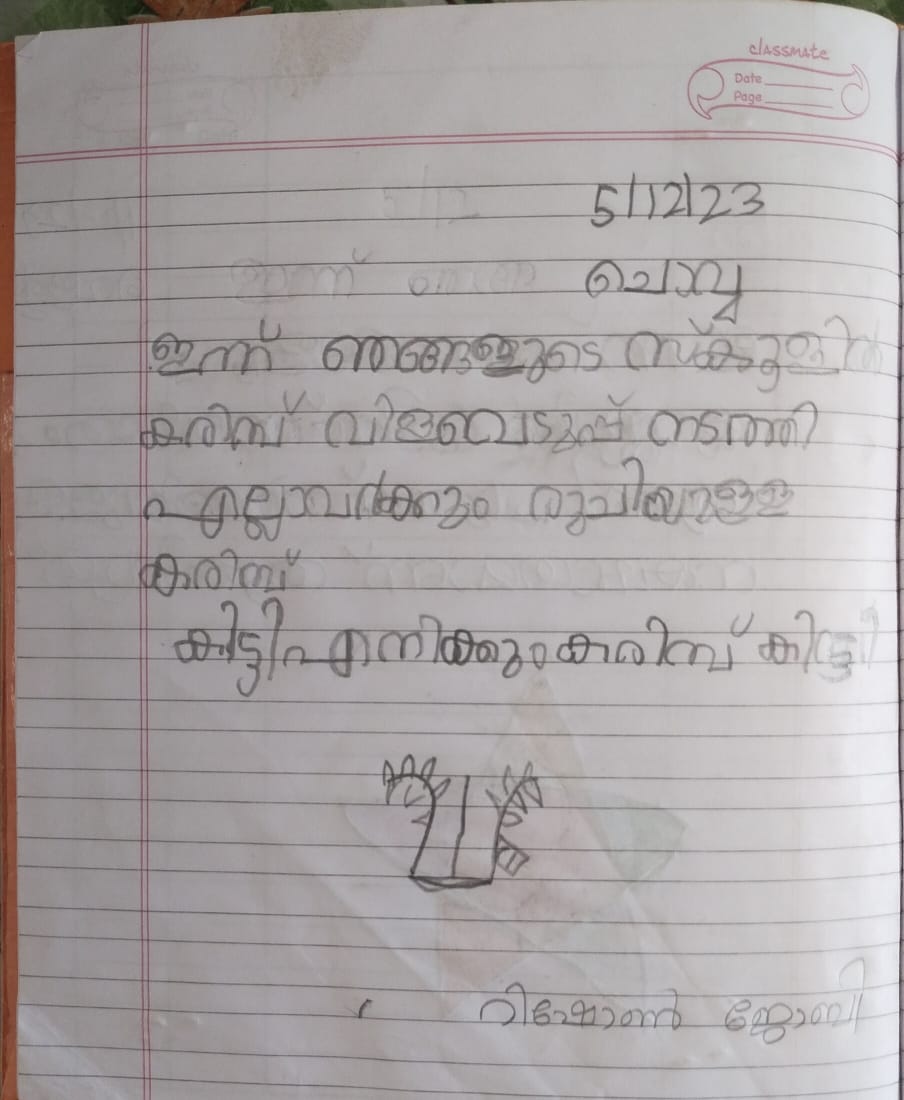 classmate
Date
Page
5/12/23
ചൊവ്വ
ഇന്ന് ഞങ്ങളുടെ സ്കൂളിൽ
കരിമ്പ് വിളവെടുപ്പ് നടത്തി
എല്ലാവർക്കും രുചിയുള്ള
കരിമ്പ്
കിട്ടി എനിക്കും കരിമ്പ് കിട്ടി
റിഷോൺ ജോബി